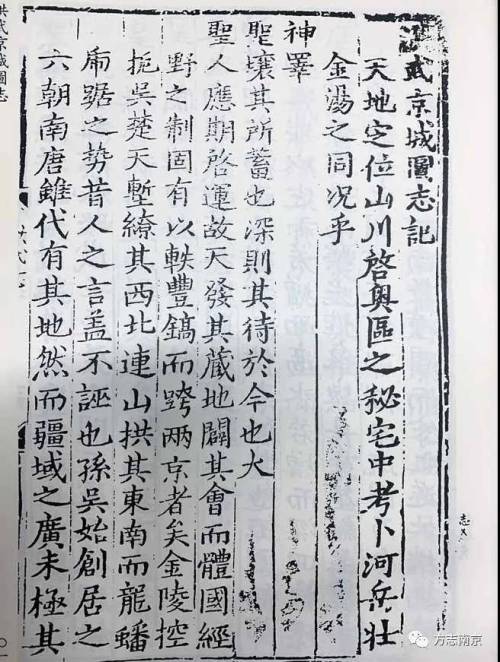 洪武京城圖志記
天地定位山川啓奥區之秘宅中考卜河岳壯
金湯之同况乎
神睪
聖壤其所蓄也深則其待於今也大
聖人應期啓運故天發其藏地闢其會而體國經
野之制固有以軼豐鎬而跨两京者矣金陵控
扼吴楚天塹繚其西北連山拱其東南而龍蟠
乕踞之勢昔人之言盖不誣也孫吴始創居之
六朝南唐雖代有其地然而疆域之廣未極其
洪武京城圖志
方志南京